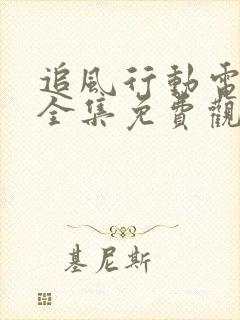 追風行動電
全集免費觀
基尼斯